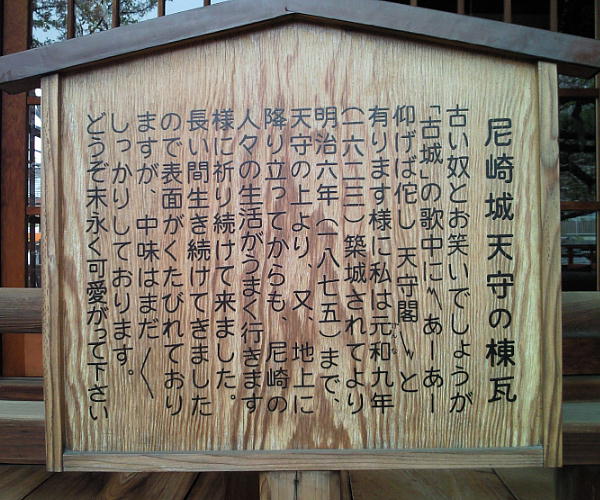 尼崎城天守の棟瓦
古い奴とお笑いでしょうが
「古城」の歌中に〝あーあー
仰げば佗し 天守閣〟と
有ります様に私は元和九年
（一六二三）築城されてより
明治六年（一八七五）まで、
天守の上より、又、地上に
降り立ってからも、尼崎の
人々の生活がうまく行きます
様に祈り続けて来ました。
長い間生き続けてきました
ので表面がくたびれており
ますが、中味はまだ〱
しっかりしております。
どうぞ末永く可愛がって下さい